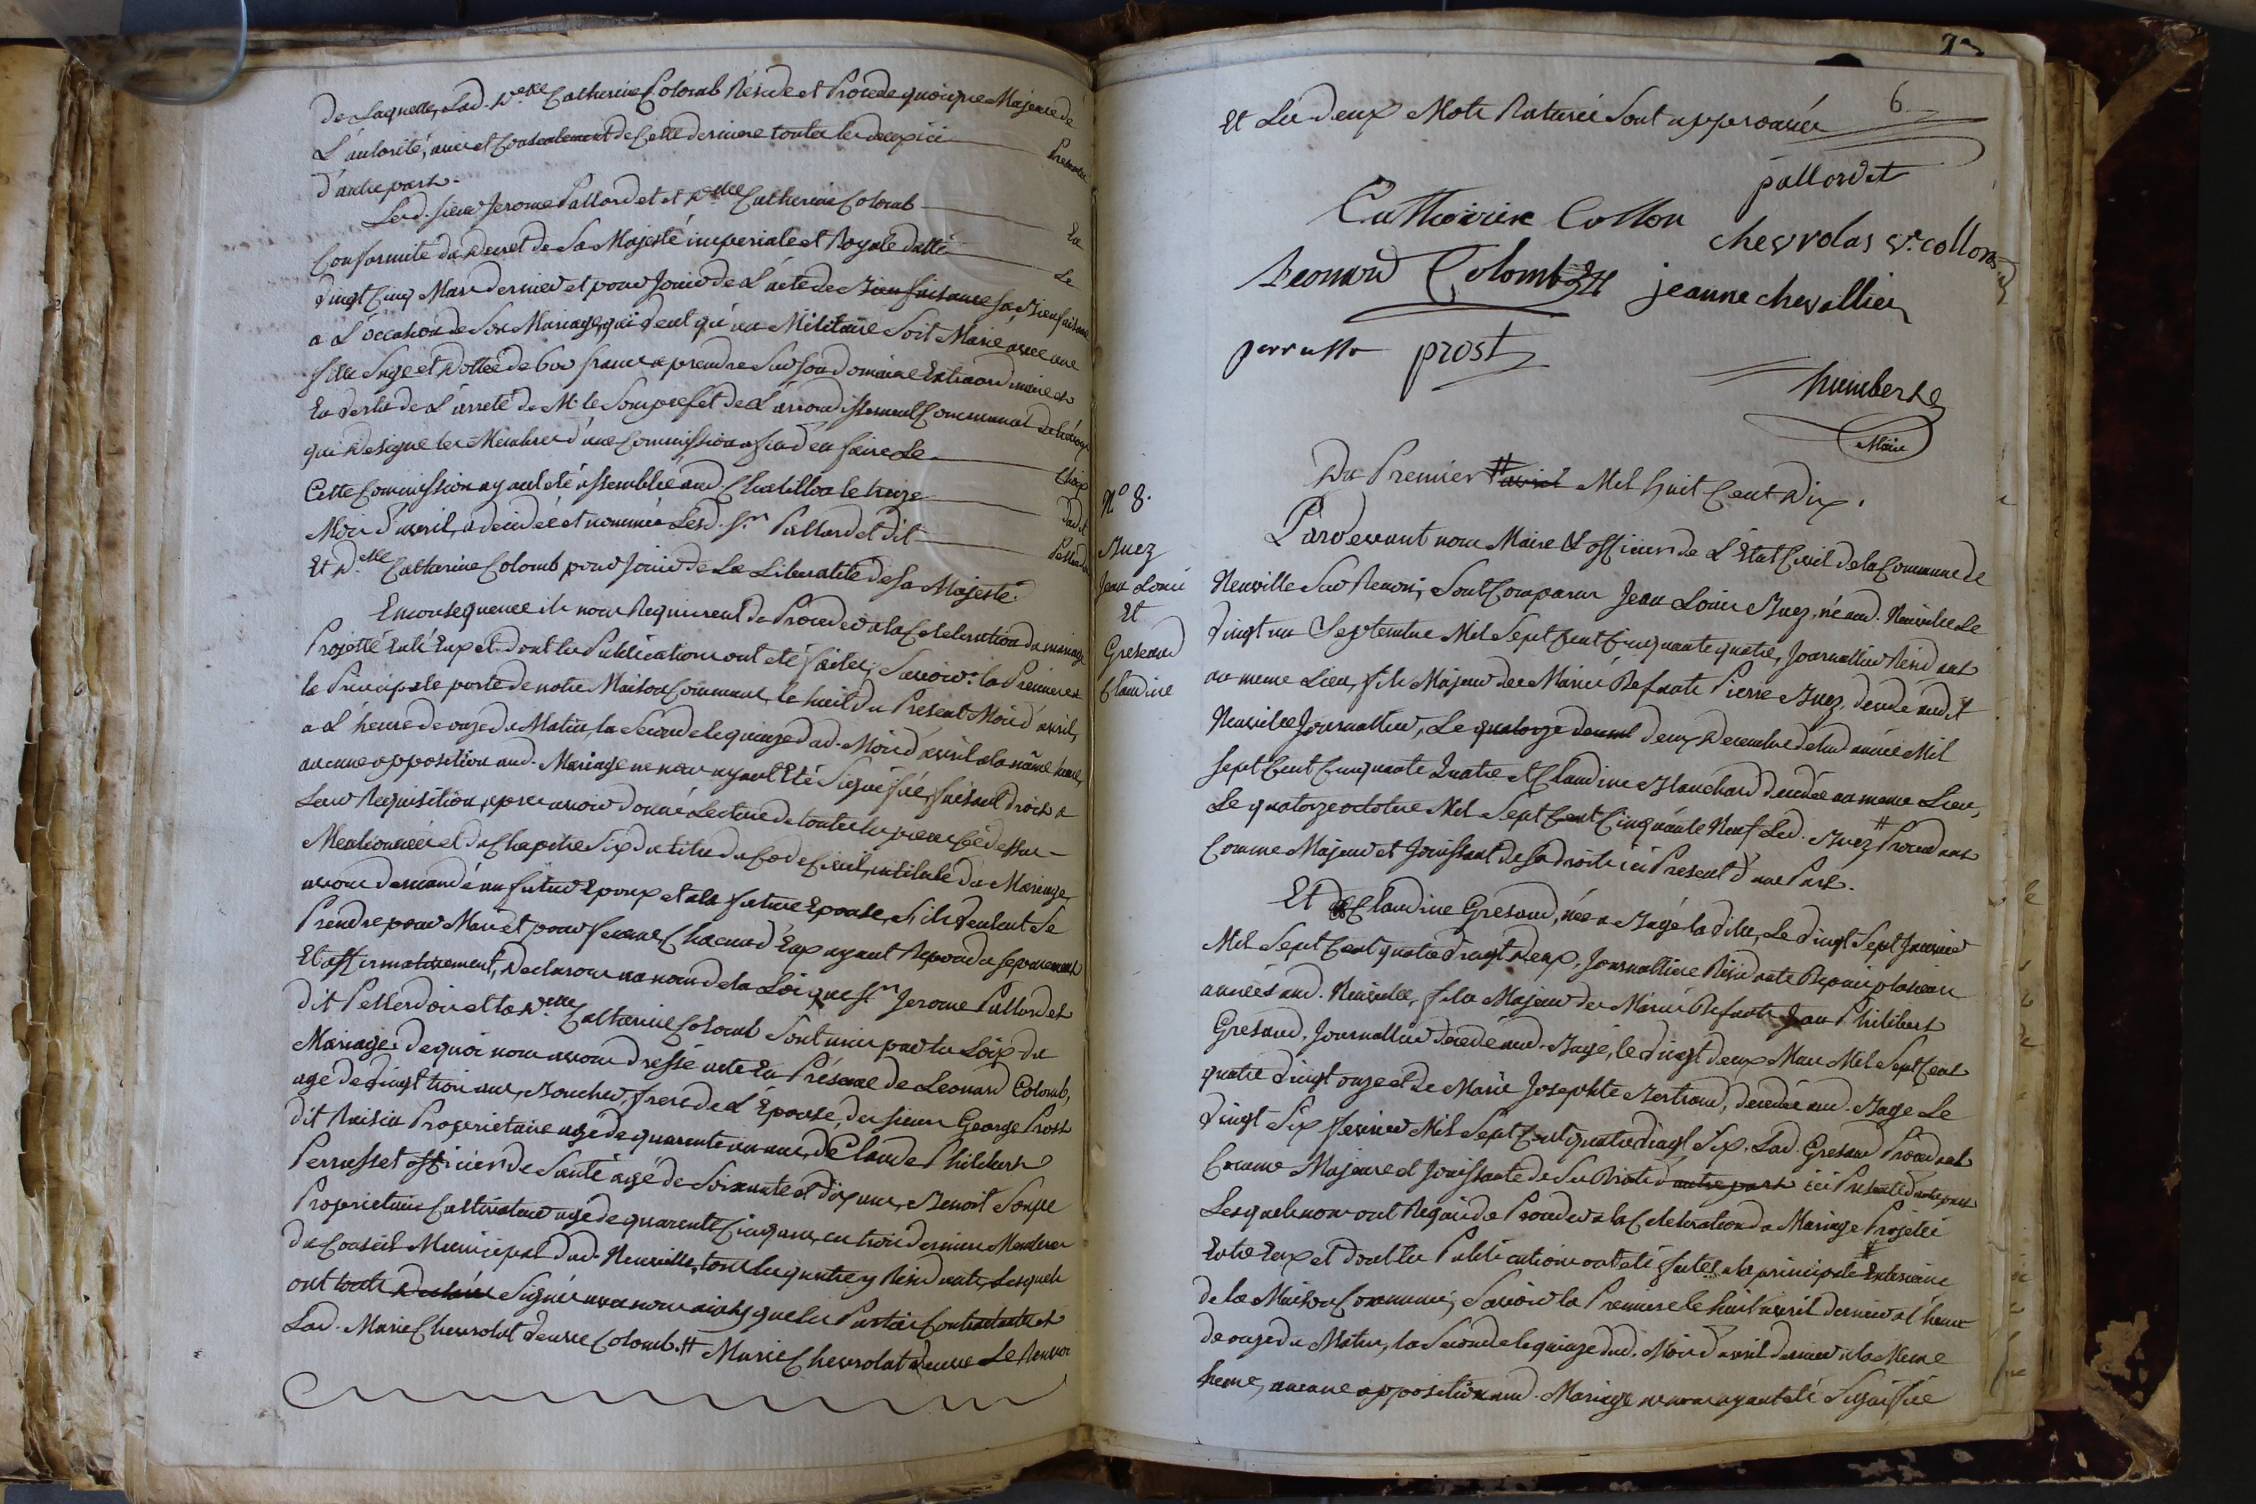 de Laquelle, Lad. Delle Catherine Colomb Réside et Procede quoique Majeure de
L'autorité, avis et Consentement de Cette derniere toutes les deux ici Presentes
d'autre part.
Led. sieur Jerome Pallordet et Delle Catherine Colomb En
Conformité du Decret de Sa Majesté imperiale et Royale datté Le
vingt Cinq Mars dernier et pour Jouir de L'acte de Bienfaisance sa Bienfaisance
a L'occasion de Son Mariage, qui veut qu'un Militaire Soit Marié avec une
fille Sage et Dottée de 600 francs a prendre Sur Son domaine Extraordinaire et
En vertu de L'arreté de M. le Souspréfet de L'arrondissement Communal
qui Designe les Membres d'une Commission afin d'en faire Le Choix
Cette Commission ayant été assemblée aud. Chatillon le treize dudit
Mois d'avril, a decidée et nommée Lesd. Sr Pallordet dit
Et Delle Catherine Colomb pour Jouir de La Liberalité de Sa Majesté.
En consequence ils nous Requierent de Proceder a la Celebration du mariage
Projetté Entr'Eux et dont les Publications ont été faites, Savoir: la Premiere a
la Principale porte de notre Maison Commune, le huit du Present Mois d'avril,
a L'heure de onze du Matin, la Seconde le quinze dud. Mois d'avril a la même heure,
aucune opposition aud. Mariage ne nous ayant Eté Signifiée, faisant droit a
Leur Requisition, apres avoir donné Lecture de toutes les pieces Cy dessus
Mentionnées et du Chapitre Six du titre du Code Civil, intitulé du Mariage,
avons demandé au futur Epoux et a la future Epouse, S'ils veulent Se
Prendre pour Mari et pour femme, Chacun d'Eux ayant Repondu Separement
Et affirmativement, Declarons au nom de la Loi que Sr Jerome Pallordet
dit et la Delle Catherine Colomb Sont unis par les Loix du
Mariage; de quoi nous avons dressé acte En Présence de Leonard Colomb,
agé de vingt trois ans, Boucher, frere de L'Epouse, du sieur George Prost
dit Raisin Proprietaire agé de quarente un ans, de Claude Philibert
Perrusset officier de Santé agé de Soixante et dix ans, Benoit Soupe
Proprietaire Cultivateur agé de quarente Cinq ans, ces trois derniers Membres
du Conseil Municipal dud. Neuville, tous les quatre y Residants, Lesquels
ont toute Declaré Signés avec nous ainsy que les Parties Contractantes et
Lad. Marie Chevrolat veuve Colomb. # Marie Chevrolat veuve Le Renvoi
6
Et Les deux Mots Raturés Sont approuvés
pallordet
Catherine Collon
chevrolas ve collon
Leonard Colomb
jeanne chevallier
perrusset prost
humbert
Maire
Du Premier # avril Mil huit Cent Dix.
No 8.
Buez
Jean Louis
Et
Gresaud
Claudine
Pardevant nous Maire & officier de L'Etat Civil de la Commune de
Neuville Sur Renom, Sont Comparus Jean Louis Buez, né aud. Neuville Le
vingt un Septembre Mil Sept Cent Cinquante quatre, Journallier Residant
au meme Lieu, fils Majeur des Mariés Defunts Pierre Buez, decedé audit
Neuville Journallier, Le quatorze deux Decembre de lad année Mil
Sept Cent Cinquante Quatre et Claudine Blanchard decedée au meme Lieu,
Le quatorze octobre Mil Sept Cent Cinquante Neuf Led. Buez # Procedant
Comme Majeur et Jouissant de Ses droits ici Present d'une Part.
Et Claudine Gresaud, née a Bagé la ville, Le vingt Sept Janvier
Mil Sept Cent quatre vingt deux, Journalliere Residante Depuis plusieurs
années aud. Neuville, fille Majeure des Mariés Defunts Jean Philibert
Gresaud, Journallier decedé aud. Bagé, le vingt deux Mars Mil Sept Cent
quatre vingt onze et de Marie Josephte Bertraud, decedée aud. Bagé Le
vingt Six fevrier Mil Sept Cent quatre vingt Six. Lad. Gresaud Procedant
Comme Majeure et Jouissante de Ses Droits d'autre part ici Presente d'autre part
Lesquels nous ont Requis de Proceder a la Celebration du Mariage Projetté
Entre Eux et dont les Publications ont été faites a la principale # Exterieure
de la Maison Commune, Savoir la Premiere le huit avril dernier a L'heure
de onze du Matin, la Seconde le quinze dud. Mois d'avril dernier a la Meme
heure, aucune opposition aud. Mariage ne nous ayant été Signifiée